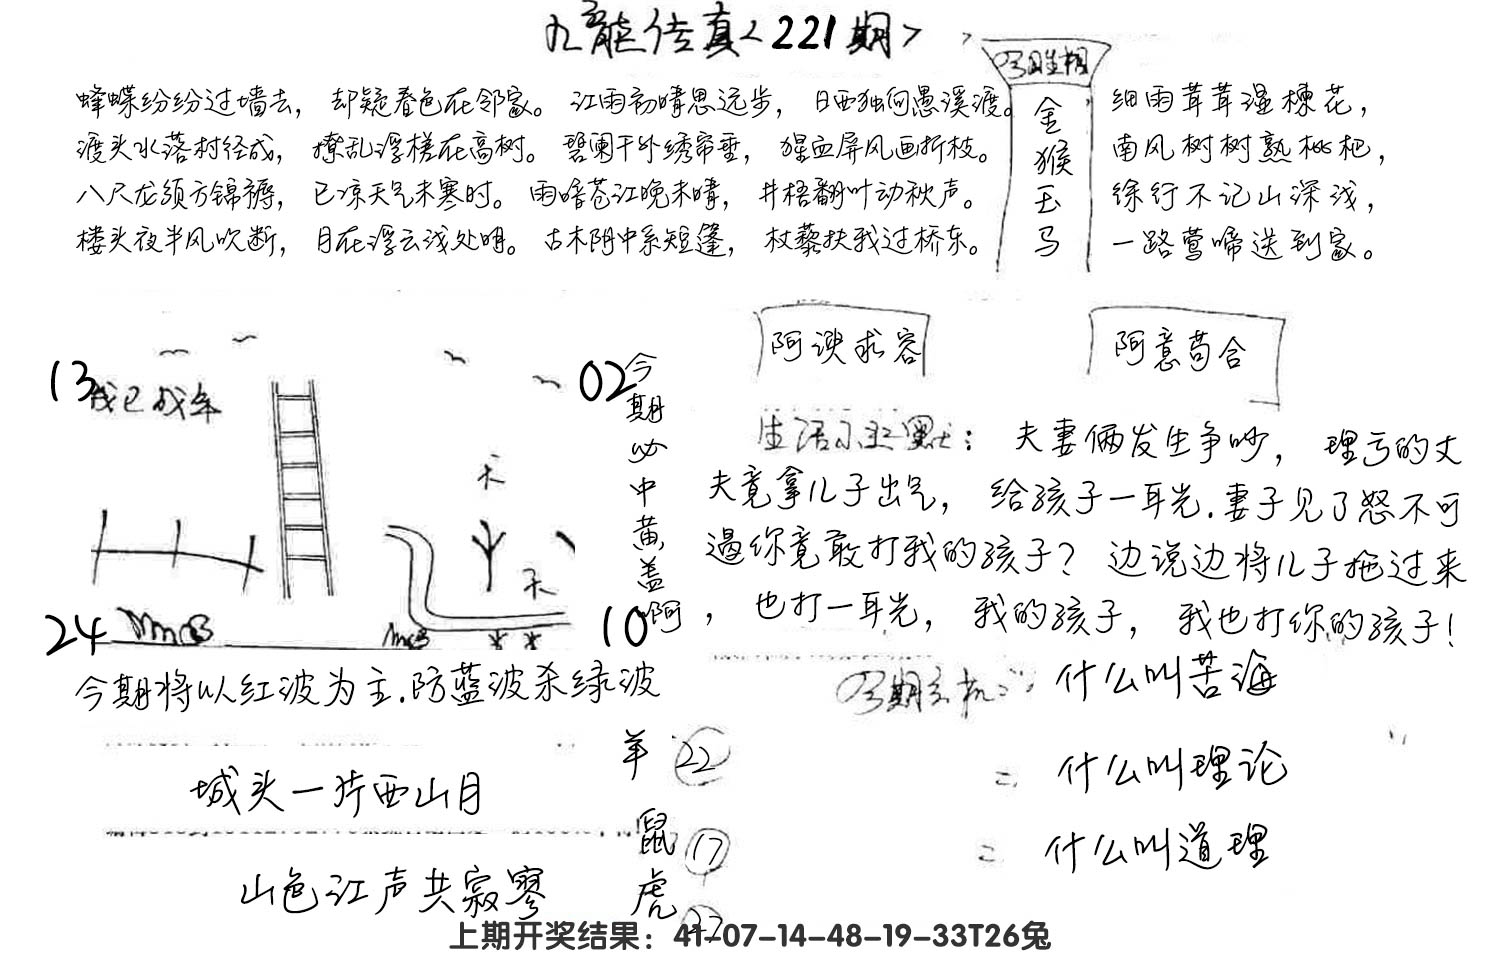 九龙传真<221期>
蜂蝶纷纷过墙去，却疑春色在邻家。江雨初晴思远步，日西独向愚溪渡。
渡头水落村径成，撩乱浮槎在高树。碧阑干外绣帘垂，猩血屏风画折枝。
八尺龙须方锦褥，已凉天气未寒时。雨暗苍江晚未晴，井梧翻叶动秋声。
楼头夜半风吹断，月在浮云浅处明。古木阴中系短篷，杖藜扶我过桥东。
今日生相
金
猴
玉
马
细雨茸茸湿楝花，
南风树树熟枇杷，
徐行不记山深浅，
一路莺啼送到家。
13
我已成年
02
24
10
天
天
今期必中黄盖啊
阿谀求容
阿意苟合
生活小幽默：夫妻俩发生争吵，理亏的丈
夫竟拿儿子出气，给孩子一耳光.妻子见了怒不可
遏你竟敢打我的孩子？边说边将儿子拖过来
，也打一耳光，我的孩子，我也打你的孩子！
今期将以红波为主.防蓝波杀绿波
今期玄机：什么叫苦海
二 什么叫理论
二 什么叫道理
城头一片西山月
山色江声共寂寥
羊 22
鼠 17
虎
上期开奖结果：41-07-14-48-19-33T26兔